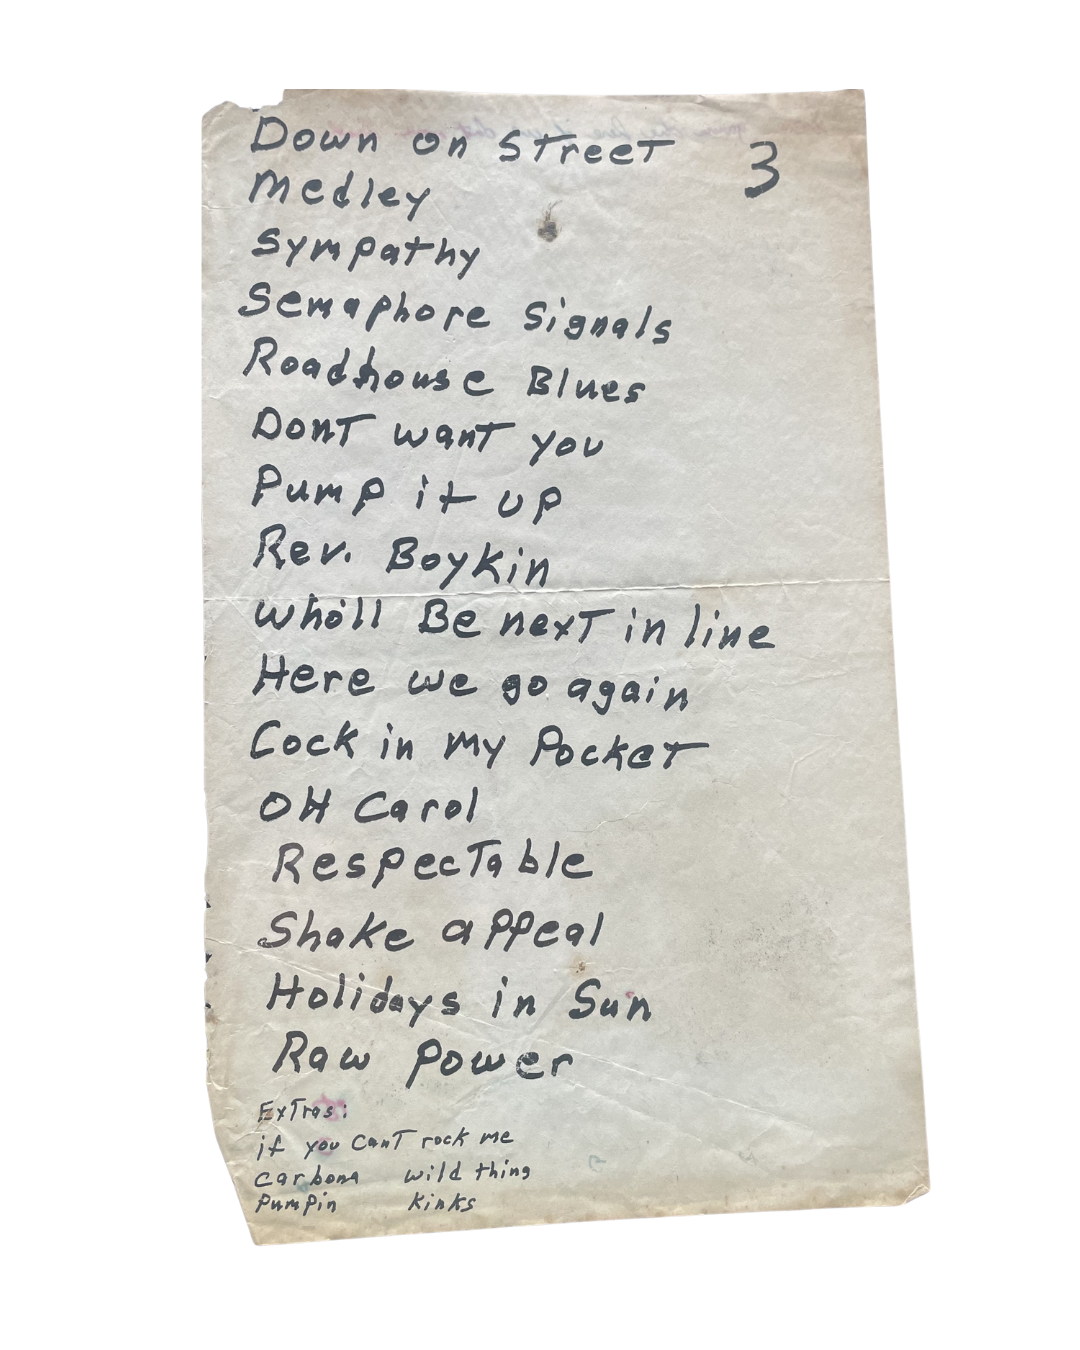 Down on Street
3
Medley
Sympathy
Semaphore Signals
Roadhouse Blues
Dont want you
Pump it up
Rev. Boykin
who'll Be next in line
Here we go again
Cock in my Pocket
OH Carol
Respectable
Shake appeal
Holidays in Sun
Raw Power
Extras:
if you Cant rock me
carbona wild thing
Pumpin Kinks